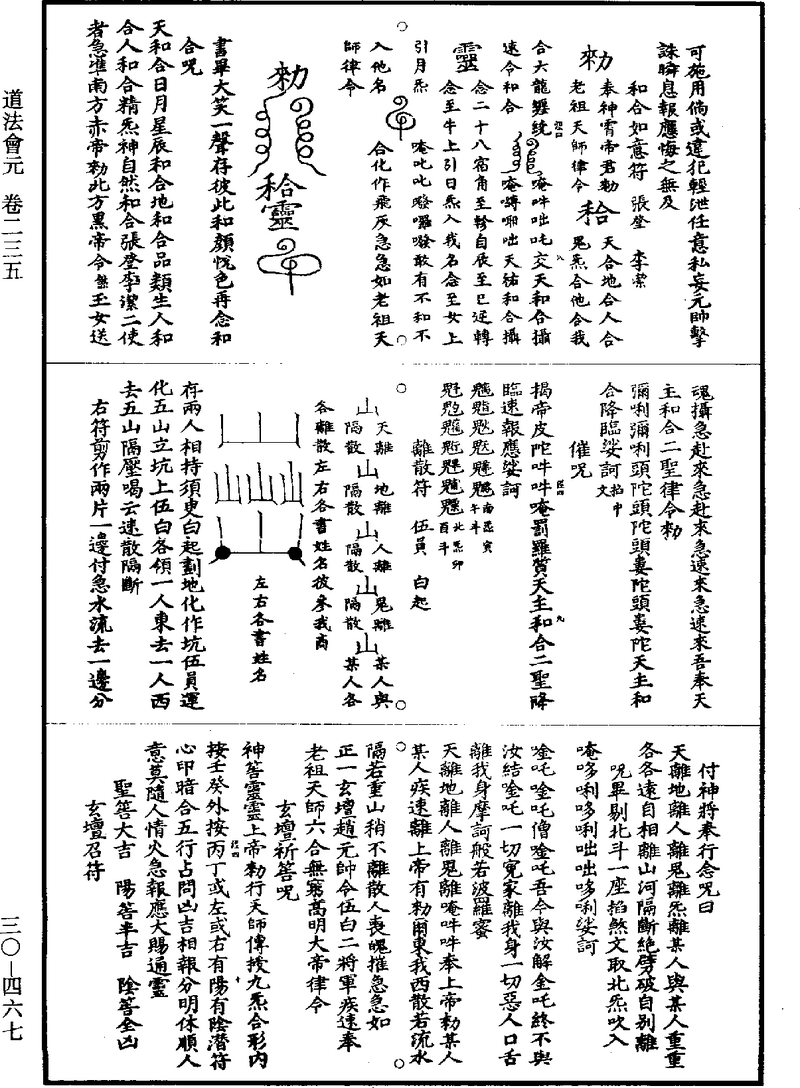 道法會元　卷二三五
三〇—四六七
可施用倘或違犯輕泄任意私妄元帥擊
誅瞬息報應悔之無及
和合如意符　張登　李潔
勑　奉神霄帝君勑　老祖天師律令
和合　天合地合人合　鬼炁合他合我
合大龍纏繞　唵吽咄吒交天和合攝
速令和合　唵嚩咄天祐和合攝
靈　念二十八宿角至軫自辰至巳逆轉
念至牛上引日炁入我名念至女上
引月炁　唵叱叱㗶囉㗶敢有不和不
入他名　合化作飛灰急急如老祖天
師律令
勑　和合靈
書畢大笑一聲存彼此和顏悅色再念和
合咒
天和合日月星辰和合地和合品類生人和
合人和合精炁神自然和合張登李潔二使
者急準南方赤帝勑北方黑帝令無玉女送
魂攝急赴來急赴來急速來急速來吾奉天
主和合二聖律令勑
彌唎彌唎頭陀頭陀頭婁陀頭婁陀天主和
合降臨娑訶
催咒
揭帝皮陀吽吽唵罰羅質天主和合二聖降
臨速報應娑訶
離散符　伍員　白起
山　天離　隔散
山　地離　隔散
山　人離　隔散
山　鬼離　隔散
山　某人與　某人各
各離散左右各書姓名彼參我商
左右各書姓名
存兩人相持須臾白起劃地化作坑伍員運
化五山立坑上伍白各領一人東去一人西
去五山隔壓喝云速散隔斷
右符剪作兩片一邊付急水流去一邊分
付神將奉行念咒曰
天離地離人離鬼離炁離某人與某人重重
各各遠自相離山河隔斷絕劈破自別離
咒畢剔北斗一座掐煞文取北炁吹入
唵哆唎哆唎咄咄哆唎娑訶
唫吒唫吒僧唫吒吾今與汝解金吒終不與
汝結唫吒一切冤家離我身一切惡人口舌
離我身摩訶般若波羅蜜
天離地離人離鬼離唵吽吽奉上帝勑某人
某人疾速離上帝有勑爾東我西散若流水
隔若重山稍不離散人喪魄摧急急如
正一玄壇趙元帥令伍白二將軍疾速奉
老祖天師六合無窮高明大帝律令
玄壇祈筶咒
神筶靈靈上帝勑行天師傳授九炁合形內
按壬癸外按丙丁或左或右有陽有陰潛符
心印暗合五行占問凶吉相報分明休順人
意莫隨人情火急報應大賜通靈
聖筶大吉　陽筶半吉　陰筶全凶
玄壇召符